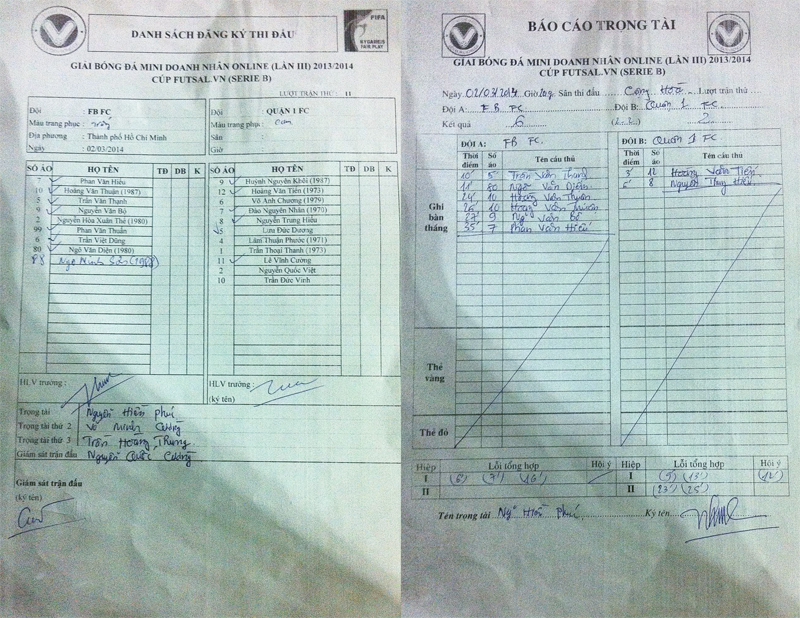 DANH SÁCH ĐĂNG KÝ THI ĐẤU
FIFA
MY GAME IS FAIR PLAY
GIẢI BÓNG ĐÁ MINI DOANH NHÂN ONLINE (LẦN III) 2013/2014
CÚP FUTSAL.VN (SERIE B)
LƯỢT TRẬN THỨ : 11
Đội : FB FC
Màu trang phục :
Địa phương : Thành phố Hồ Chí Minh
Ngày : 02/03/2014
Đội QUẬN 1 FC
Màu trang phục : cam
Sân
Giờ
SỐ ÁO HỌ TÊN TĐ DB K
7 Phan Văn Hiếu
10 Hoàng Văn Thuận (1987)
5 Trần Văn Thạnh
9 Nguyễn Văn Bộ
2 Nguyễn Hòa Xuân Thê (1980)
99 Phan Văn Thuần
6 Trần Việt Dũng
80 Ngô Văn Diện (1980)
88 Ngô Minh Sơn (1988)
SỐ ÁO HỌ TÊN TĐ DB K
9 Huỳnh Nguyên Khôi (1987)
12 Hoàng Văn Tiến (1973)
6 Võ Anh Chương (1979)
7 Đào Nguyên Nhân (1970)
8 Nguyễn Trung Hiếu
5 Lưu Đức Dương
4 Lâm Thuận Phước (1971)
1 Trần Thoại Thanh (1973)
11 Lê Vĩnh Cường
2 Nguyễn Quốc Việt
10 Trần Đức Vinh
HLV trưởng :
HLV trưởng :
(ký tên)
Trọng tài Nguyễn Hiền Phú
Trọng tài thứ 2 Võ Minh Cường
Trọng tài thứ 3 Trần Hoàng Trung
Giám sát trận đấu Nguyễn Quốc Cường
Giám sát trận đấu
(ký tên)
BÁO CÁO TRỌNG TÀI
GIẢI BÓNG ĐÁ MINI DOANH NHÂN ONLINE (LẦN III) 2013/2014
CÚP FUTSAL.VN (SERIE B)
Ngày 02/03/2014 Giờ 20g Sân thi đấu Cộng Hòa Lượt trận thứ
Đội A: FB FC Đội B: Quận 1 FC
Kết quả 6 2
ĐỘI A: FB FC.
Thời điểm Số áo Tên cầu thủ
10' 5 Trần Văn Thạnh
11' 80 Ngô Văn Diện
24' 10 Hoàng Văn Thuận
26' 10 Hoàng Văn Thuận
27' 9 Ng Văn Bộ
35' 7 Phan Văn Hiếu
ĐỘI B: Quận 1 FC
Thời điểm Số áo Tên cầu thủ
3' 12 Hoàng Văn Tiến
5' 8 Nguyễn Trung Hiếu
Ghi bàn thắng
Thẻ vàng
Thẻ đỏ
Hiệp Lỗi tổng hợp Hội ý
I (6') (7') (16')
II
Hiệp Lỗi tổng hợp Hội ý
I (5') (13') (12')
II (23') (25')
Tên trọng tài Ng Hiền Phú Ký tên